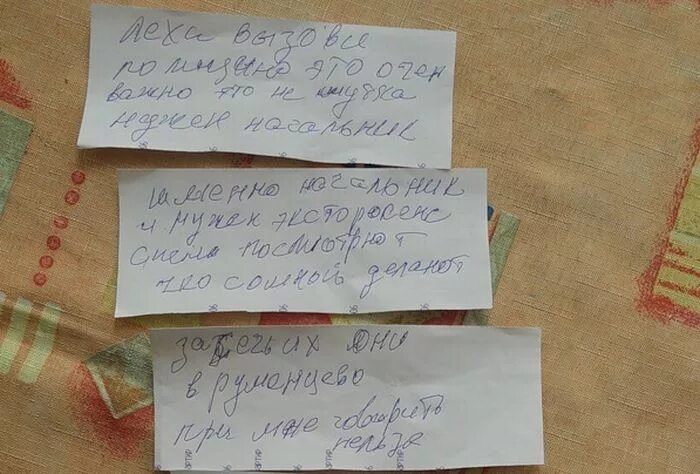 Леха вызови
полицию это очен
важно это не шутка
нужен начальник
именно начальник
и нужен эксторосенс
с ними посмотрют
что сомной делают
засечь их они
в румянцево
при мне говорить
нельзя